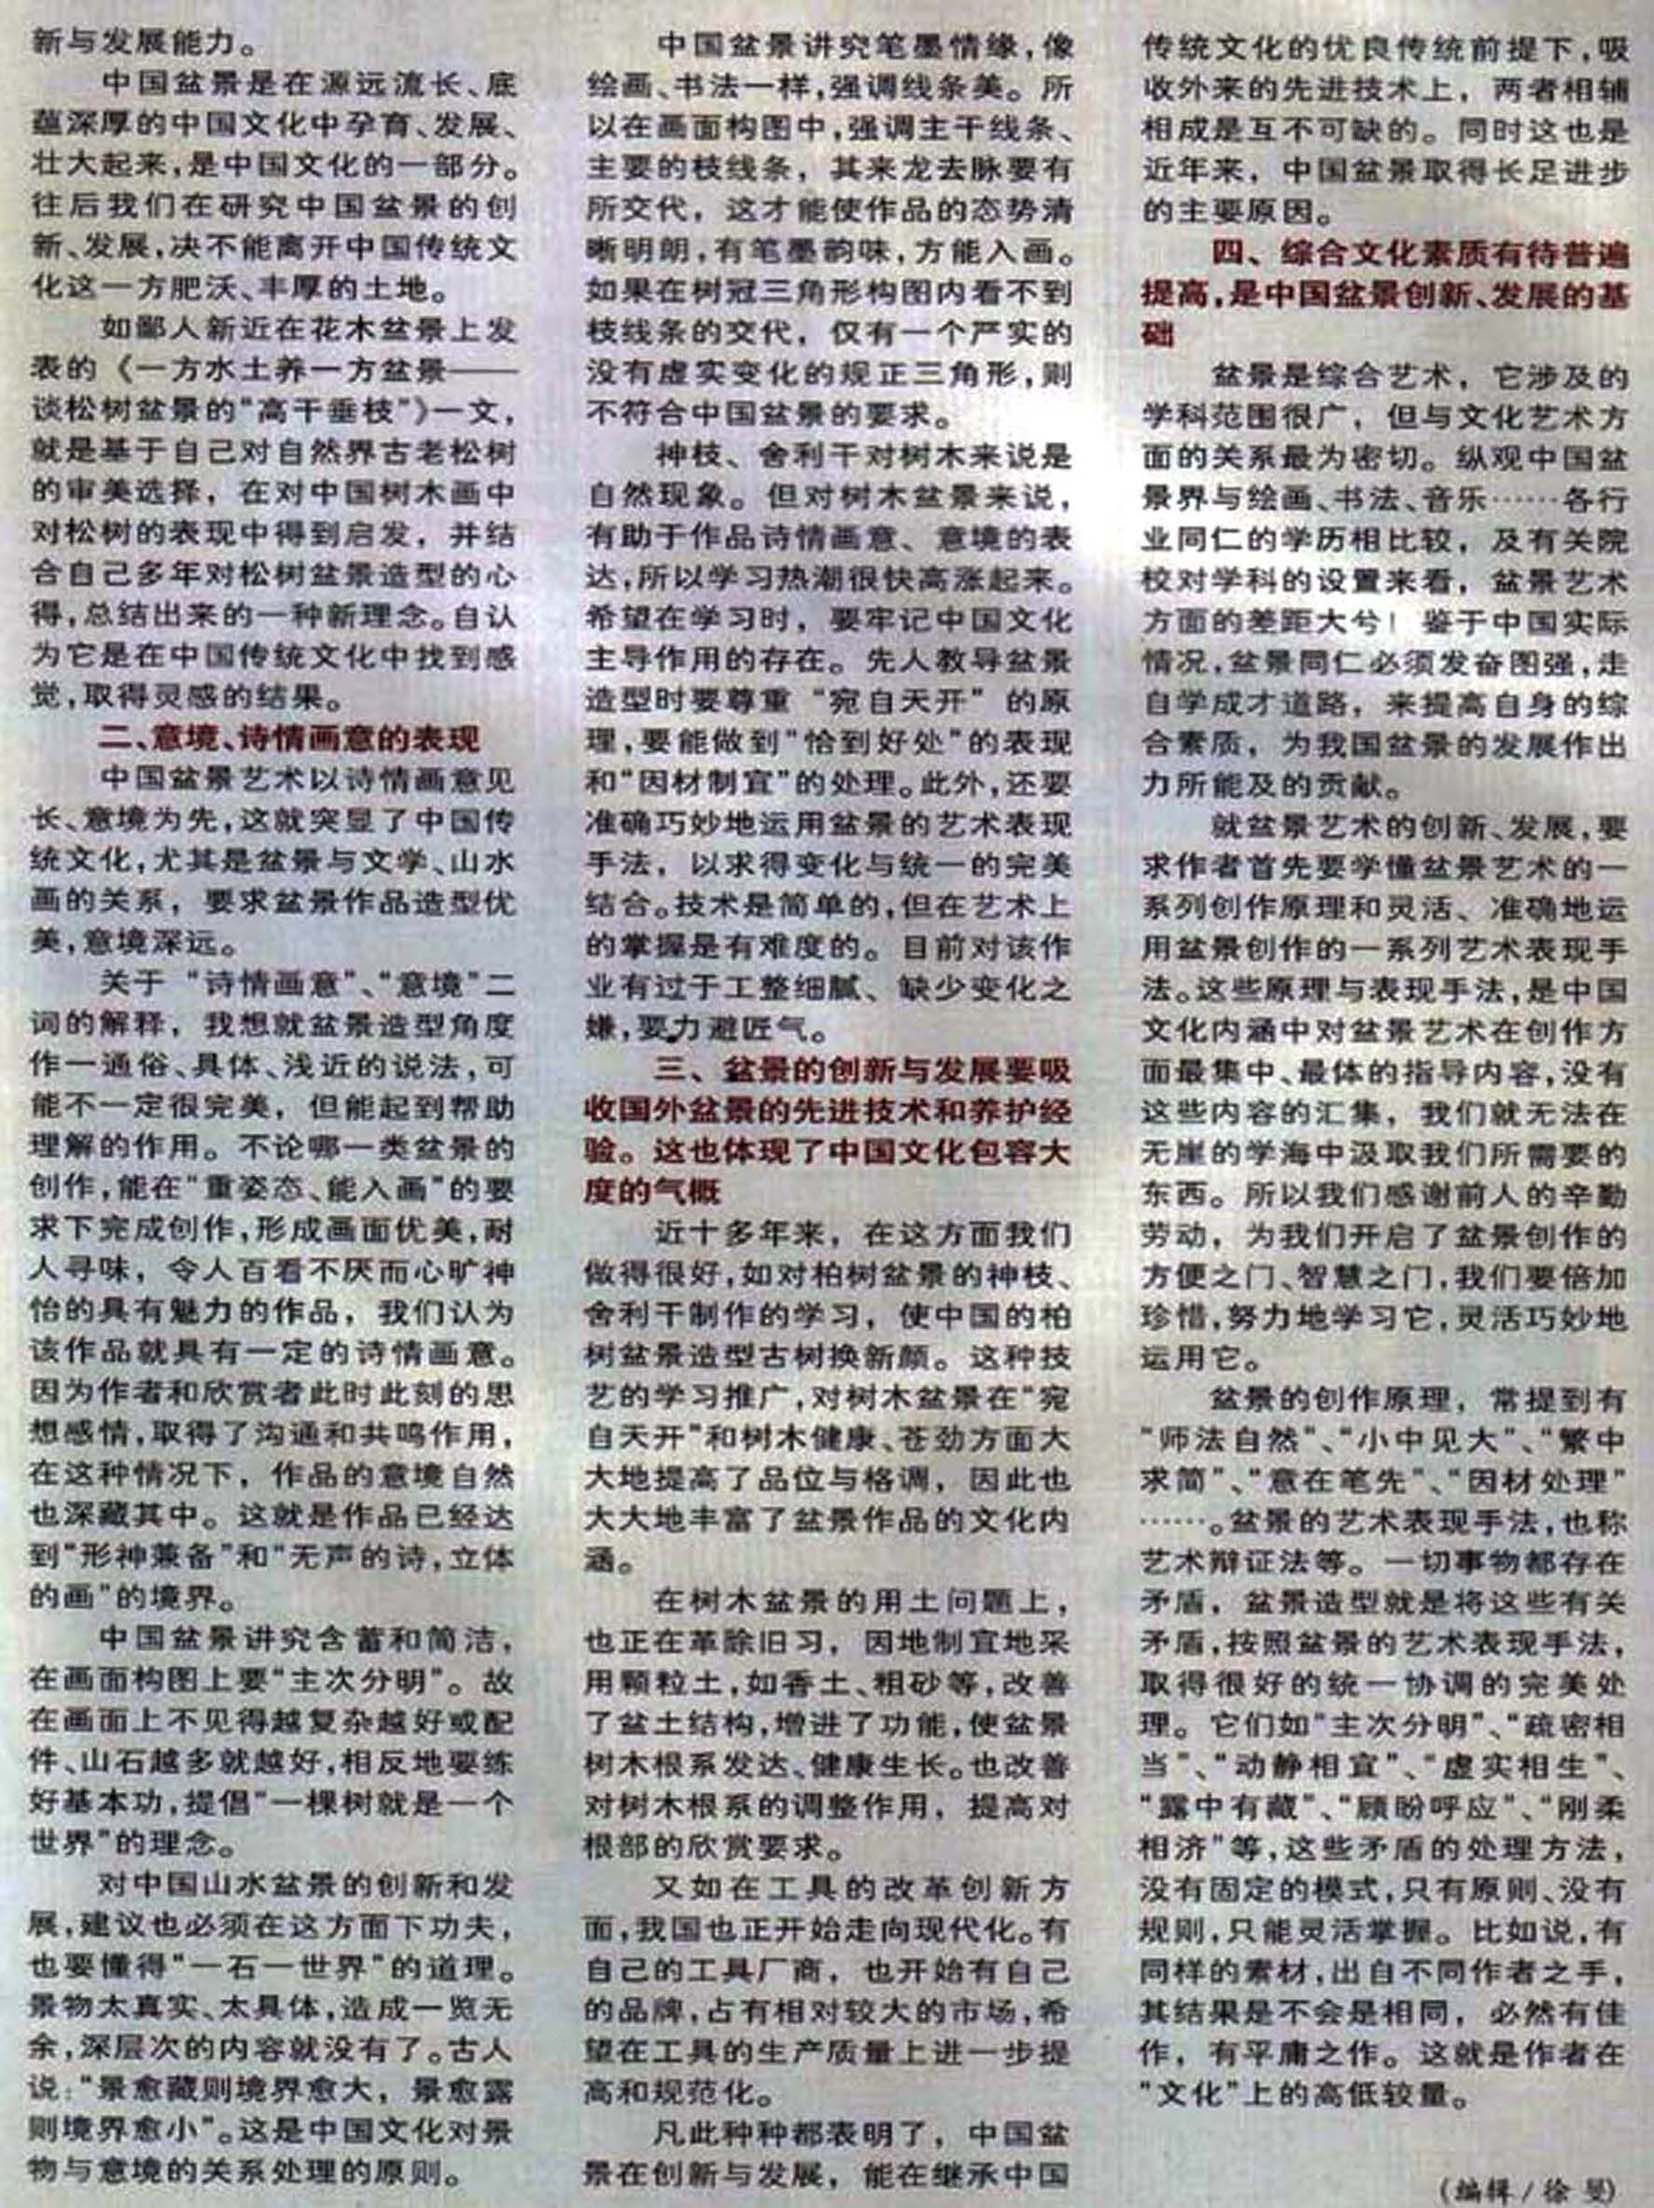 新与发展能力。
中国盆景是在源远流长、底
蕴深厚的中国文化中孕育、发展、
壮大起来,是中国文化的一部分。
往后我们在研究中国盆景的创
新、发展,决不能离开中国传统文
化这一方肥沃、丰厚的土地。
如鄙人新近在花木盆景上发
表的《一方水土养一方盆景——
谈松树盆景的“高干垂枝”》一文,
就是基于自己对自然界古老松树
的审美选择，在对中国树木画中
对松树的表现中得到启发，并结
合自己多年对松树盆景造型的心
得,总结出来的一种新理念。自认
为它是在中国传统文化中找到感
觉,取得灵感的结果。
二、意境、诗情画意的表现
中国盆景艺术以诗情画意见
长、意境为先,这就突显了中国传
统文化,尤其是盆景与文学、山水
画的关系，要求盆景作品造型优
美,意境深远。
关于“诗情画意”、“意境”二
词的解释，我想就盆景造型角度
作一通俗、具体、浅近的说法,可
能不一定很完美，但能起到帮助
理解的作用。不论哪一类盆景的
创作,能在“重姿态、能入画”的要
求下完成创作,形成画面优美,耐
人寻味，令人百看不厌而心旷神
怡的具有魅力的作品，我们认为
该作品就具有一定的诗情画意。
因为作者和欣赏者此时此刻的思
想感情,取得了沟通和共鸣作用,
在这种情况下，作品的意境自然
也深藏其中。这就是作品已经达
到“形神兼备”和“无声的诗,立体
的画”的境界。
中国盆景讲究含蓄和简洁,
在画面构图上要“主次分明”。故
在画面上不见得越复杂越好或配
件、山石越多就越好,相反地要练
好基本功,提倡“一棵树就是一个
世界”的理念。
对中国山水盆景的创新和发
展,建议也必须在这方面下功夫,
也要懂得“一石一世界”的道理。
景物太真实、太具体,造成一览无
余,深层次的内容就没有了。古人
说:“景愈藏则境界愈大，景愈露
则境界愈小”。这是中国文化对景
物与意境的关系处理的原则。
中国盆景讲究笔墨情缘,像
绘画、书法一样,强调线条美。所
以在画面构图中,强调主干线条、
主要的枝线条，其来龙去脉要有
所交代，这才能使作品的态势清
晰明朗,有笔墨韵味,方能入画。
如果在树冠三角形构图内看不到
枝线条的交代，仅有一个严实的
没有虚实变化的规正三角形,则
不符合中国盆景的要求。
神枝、舍利干对树木来说是
自然现象。但对树木盆景来说,
有助于作品诗情画意、意境的表
达,所以学习热潮很快高涨起来。
希望在学习时，要牢记中国文化
主导作用的存在。先人教导盆景
造型时要尊重“宛自天开”的原
理,要能做到“恰到好处”的表现
和“因材制宜”的处理。此外,还要
准确巧妙地运用盆景的艺术表现
手法，以求得变化与统一的完美
结合。技术是简单的,但在艺术上
的掌握是有难度的。目前对该作
业有过于工整细腻、缺少变化之
嫌,要力避匠气。
三、盆景的创新与发展要吸
收国外盆景的先进技术和养护经
验。这也体现了中国文化包容大
度的气概
近十多年来，在这方面我们
做得很好,如对柏树盆景的神枝、
舍利干制作的学习，使中国的柏
树盆景造型古树换新颜。这种技
艺的学习推广,对树木盆景在“宛
自天开”和树木健康、苍劲方面大
大地提高了品位与格调，因此也
大大地丰富了盆景作品的文化内
涵。
在树木盆景的用土问题上,
也正在革除旧习，因地制宜地采
用颗粒土,如香土、粗砂等,改善
了盆土结构,增进了功能,使盆景
树木根系发达、健康生长。也改善
对树木根系的调整作用，提高对
根部的欣赏要求。
又如在工具的改革创新方
面,我国也正开始走向现代化。有
自己的工具厂商，也开始有自己
的品牌,占有相对较大的市场,希
望在工具的生产质量上进一步提
高和规范化。
凡此种种都表明了，中国盆
景在创新与发展，能在继承中国
传统文化的优良传统前提下,吸
收外来的先进技术上，两者相辅
相成是互不可缺的。同时这也是
近年来，中国盆景取得长足进步
的主要原因。
四、综合文化素质有待普遍
提高,是中国盆景创新、发展的基
础
盆景是综合艺术，它涉及的
学科范围很广，但与文化艺术方
面的关系最为密切。纵观中国盆
景界与绘画、书法、音乐……各行
业同仁的学历相比较，及有关院
校对学科的设置来看，盆景艺术
方面的差距大兮！鉴于中国实际
情况,盆景同仁必须发奋图强,走
自学成才道路，来提高自身的综
合素质，为我国盆景的发展作出
力所能及的贡献。
就盆景艺术的创新、发展,要
求作者首先要学懂盆景艺术的一
系列创作原理和灵活、准确地运
用盆景创作的一系列艺术表现手
法。这些原理与表现手法,是中国
文化内涵中对盆景艺术在创作方
面最集中、最体的指导内容,没有
这些内容的汇集，我们就无法在
无崖的学海中汲取我们所需要的
东西。所以我们感谢前人的辛勤
劳动，为我们开启了盆景创作的
方便之门、智慧之门,我们要倍加
珍惜,努力地学习它,灵活巧妙地
运用它。
盆景的创作原理，常提到有
“师法自然”、“小中见大”、“繁中
求简”、“意在笔先”、“因材处理”
……。盆景的艺术表现手法,也称
艺术辩证法等。一切事物都存在
矛盾，盆景造型就是将这些有关
矛盾,按照盆景的艺术表现手法,
取得很好的统一协调的完美处
理。它们如“主次分明”、“疏密相
当”、“动静相宜”、“虚实相生”、
“露中有藏”、“顾盼呼应”、“刚柔
相济”等,这些矛盾的处理方法,
没有固定的模式,只有原则、没有
规则,只能灵活掌握。比如说,有
同样的素材,出自不同作者之手,
其结果是不会是相同，必然有佳
作，有平庸之作。这就是作者在
“文化”上的高低较量。
(编辑/徐旻)